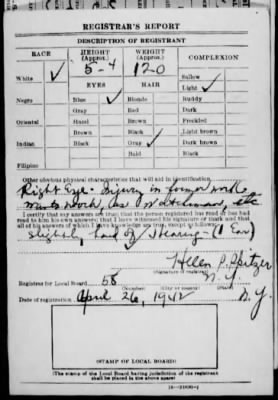 REGISTRAR'S REPORT
DESCRIPTION OF REGISTRANT
RACE HEIGHT (Approx.) WEIGHT (Approx.) COMPLEXION
5-4 120
White ✓ Sallow
EYES HAIR Light ✓
Negro Blue ✓ Blonde Ruddy
Gray Red Dark
Oriental Hazel Brown Freckled
Brown Black Light brown
Indian Black Gray ✓ Dark brown
Bald Black
Filipino
Other obvious physical characteristics that will aid in identification
Right Eye - Injury in former work
wants work, as Watchman, etc
I certify that my answers are true; that the person registered has read or has had
read to him his own answers; that I have witnessed his signature or mark and that
all of his answers of which I have knowledge are true, except as follows:
slightly hard of Hearing - (1 Ear)
Helen P. Spitzer
(Signature of registrar)
Registrar for Local Board 58 N.Y.
(Number) (City or county) (State)
Date of registration April 26, 1942 N.Y.
(STAMP OF LOCAL BOARD)
(The stamp of the Local Board having jurisdiction of the registrant
shall be placed in the above space)